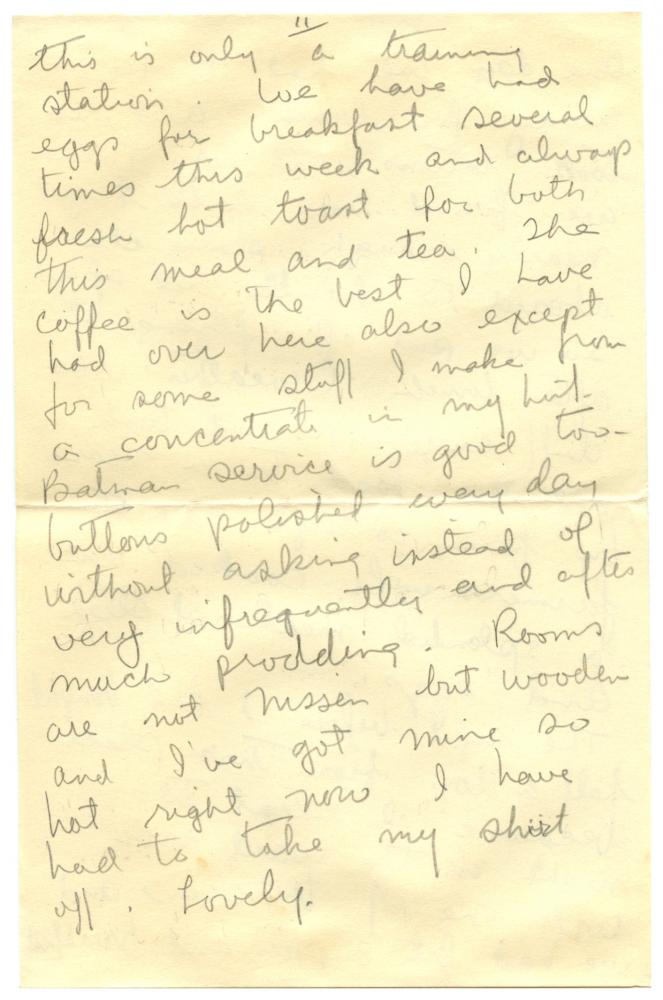 11
this is only a training
station. We have had
eggs for breakfast several
times this week and always
fresh hot toast for both
this meal and tea. The
coffee is the best I have
had over here also except
for some stuff I make from
a concentrate in my hut.
Batman service is good too -
buttons polished every day
without asking instead of
very infrequently and after
much prodding. Rooms
are not nissen but wooden
and I've got mine so
hot right now I have
had to take my shirt
off. Lovely.